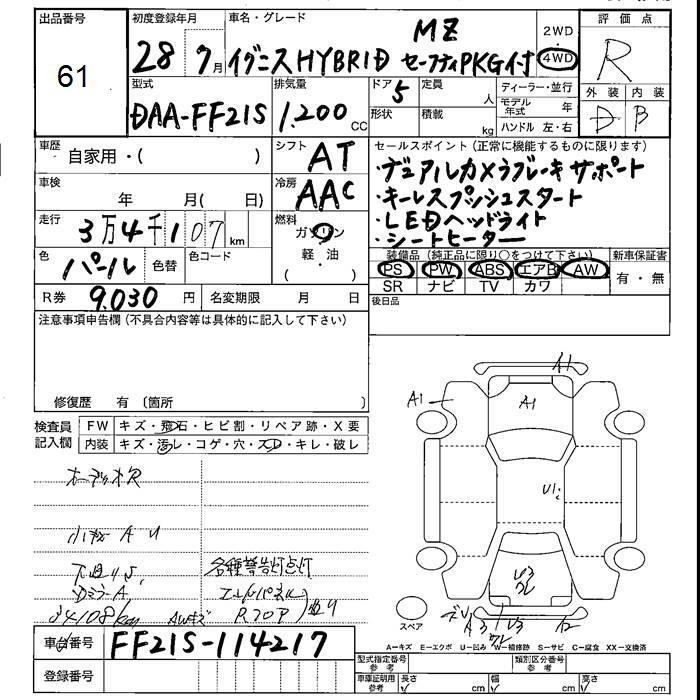 出品番号
61
初度登録年月
28 7月
車名・グレード
MZ
イグニスHYBRID セーフティPKG付
2WD
4WD
評価点
R
型式
DAA-FF21S
排気量
1.200 CC
ドア 5
形状
定員 人
積載 kg
ディーラー・並行
モデル年式 年
ハンドル 左・右
外装 内装
D B
車歴
自家用・( )
シフト
AT
車検
年 月( 日)
冷房
AAC
走行
3万4千107km
燃料
ガソリン
軽・油
( )
色
パール
色替
色コード
R券 9.030 円
名変期限 月 日
セールスポイント(正常に機能するものに限ります)
・デュアルカメラブレーキサポート
・キーレスプッシュスタート
・LEDヘッドライト
・シートヒーター
装備品(純正品に限り○をつけて下さい)
新車保証書
PS PW ABS エアB AW
SR ナビ TV カワ
有・無
後日品
注意事項申告欄(不具合内容等は具体的に記入して下さい)
修復歴 有〔箇所 〕
検査員記入欄
FW キズ・飛石・ヒビ割・リペア跡・X要
内装 キズ・汚レ・コゲ・穴・スレ・キレ・破レ
オーディオR
小キズ A U
DミラーA
34108km AWキズ
各種警告灯点灯
A1
A1
A1
U1
スペア
A3
U3
A2
A=キズ E=エクボ U=凹み W=補修跡 S=サビ C=腐食 XX=交換済
車台番号
FF21S-114217
登録番号
型式指定番号 参考
類別区分番号 参考
車庫証明用 参考
長さ cm
幅 cm
高さ cm